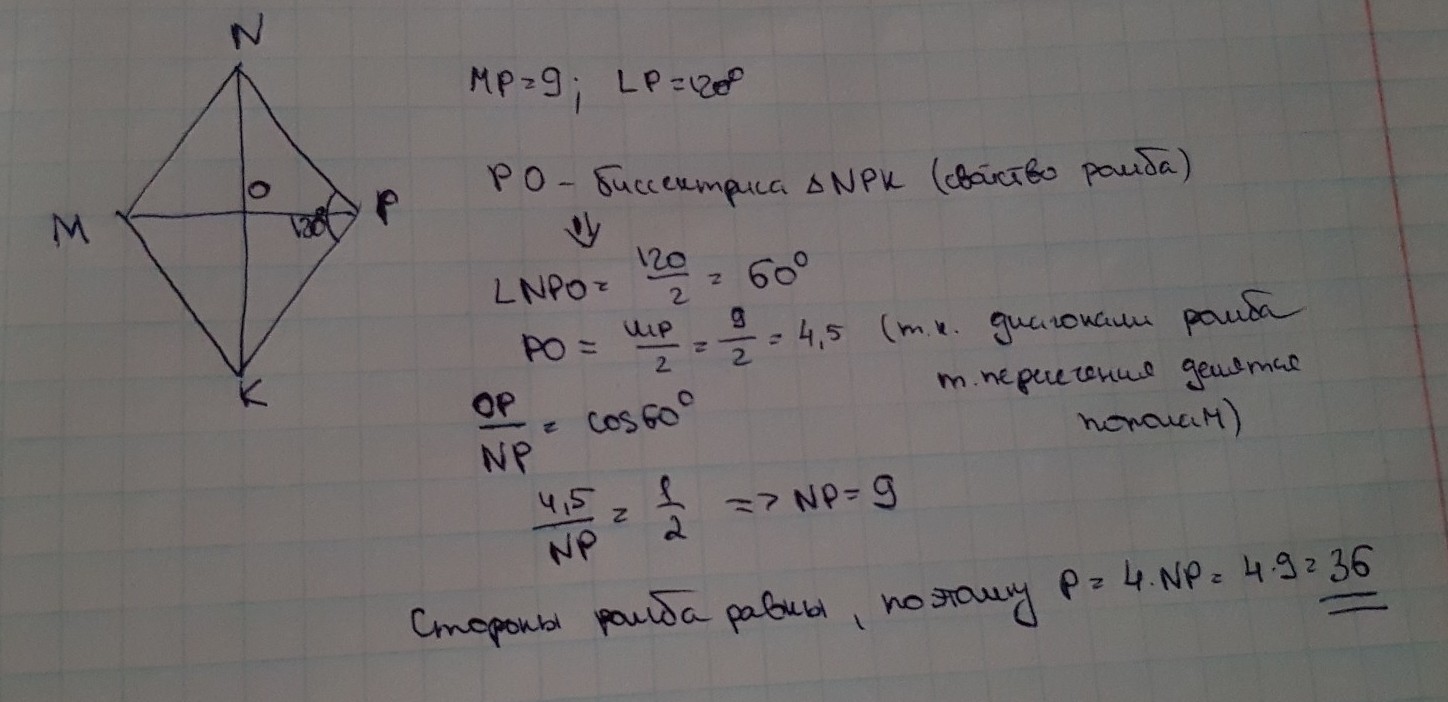 N
MP=9; ∠P=120°
PO – биссектриса △NPK (свойство ромба)
O
M
120°
P
⇓
∠NPO = 120/2 = 60°
PO = MP/2 = 9/2 = 4,5 (т.к. диагонали ромба
т. пересечения делятся
пополам)
K
OP/NP = cos60°
4,5/NP = 1/2 => NP = 9
Стороны ромба равны, поэтому P = 4·NP = 4·9 = 36